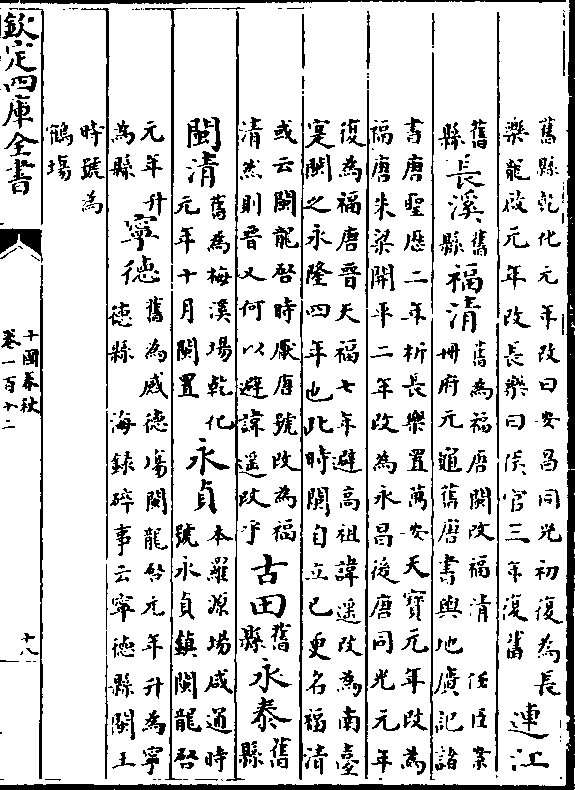 舊縣乾化元年改曰安昌同光初復為長
樂龍啟元年改長樂曰侯官三年復舊
連江
舊
縣
長溪
舊
縣
福清
舊為福唐閩改福清 任臣案
冊府元龜舊唐書輿地廣記諸
書唐聖厯二年析長樂置萬安天寶元年改為
福唐朱梁開平二年改為永昌後唐同光元年
復為福唐晉天福七年避高祖諱遥改為南臺
寔閩之永隆四年也此時閩自立已更名福清
或云閩龍啓時厭唐號改為福
清然則晉又何以避諱遥改乎
古田
舊
縣
永泰
舊
縣
閩清
舊為梅溪場乾化
元年十月閩置
永貞
本羅源場咸通時
號永貞鎮閩龍啓
元年升
為縣
寧德
舊為感德場閩龍啓元年升為寧
德縣 海録碎事云寧德縣閩王
時號為
鶴場
欽定四庫全書
十國春秋
卷一百十二
十八